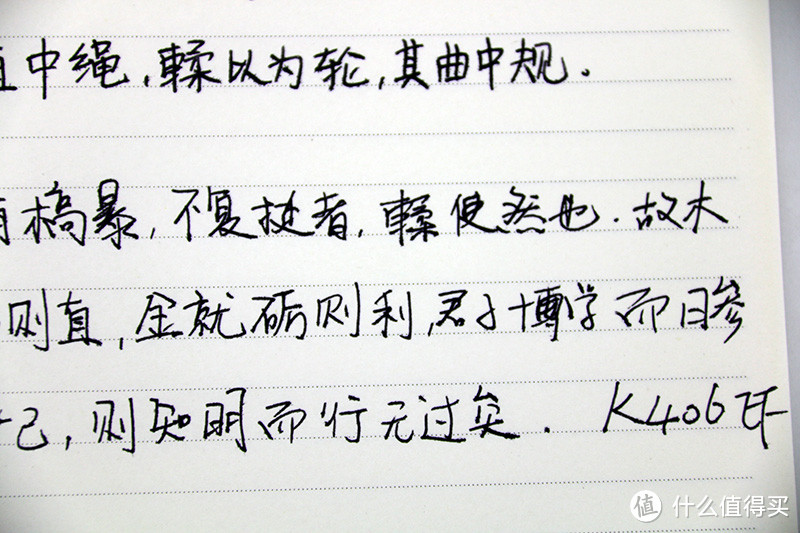 直中绳，輮以为轮，其曲中规。
有槁暴，不复挺者，輮使然也．故木
则直，金就砺则利，君子博学而日参
己，则知明而行无过矣． K406 EF
值 什么值得买